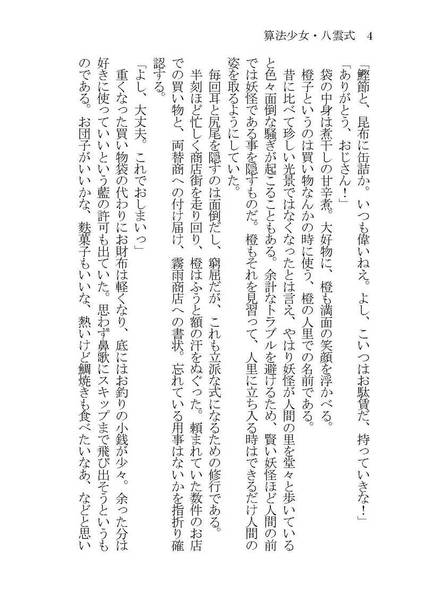 算法少女・八雲式　4
「鰹節と、昆布に缶詰か。いつも偉いねえ。よし、こいつはお駄賃だ、持っていきな！」
「ありがとう、おじさん！」
袋の中身は煮干しの甘辛煮。大好物に、橙も満面の笑顔を浮かべる。
橙子というのは買い物なんかの時に使う、橙の人里での名前である。
昔に比べて珍しい光景ではなくなったとは言え、やはり妖怪が人間の里を堂々と歩いている
と色々面倒な騒ぎが起こることもある。余計なトラブルを避けるため、賢い妖怪ほど人間の前
では妖怪である事を隠すものだ。橙もそれを見習って、人里に立ち入る時はできるだけ人間の
姿を取るようにしていた。
毎回耳と尻尾を隠すのは面倒だし、窮屈だが、これも立派な式になるための修行である。
半刻ほど忙しく商店街を走り回り、橙はふうと額の汗をぬぐった。頼まれていた数件のお店
での買い物と、両替商への付け届け、霧雨商店への書状。忘れている用事はないかを指折り確
認する。
「よし、大丈夫。これでおしまいっ」
重くなった買い物袋の代わりにお財布は軽くなり、底にはお釣りの小銭が少々。余った分は
好きに使っていいという藍の許可も出ていた。思わず鼻歌にスキップまで飛び出そうというも
のである。お団子がいいかな、麩菓子もいいな、熱いけど鯛焼きも食べたいなあ、などと思い